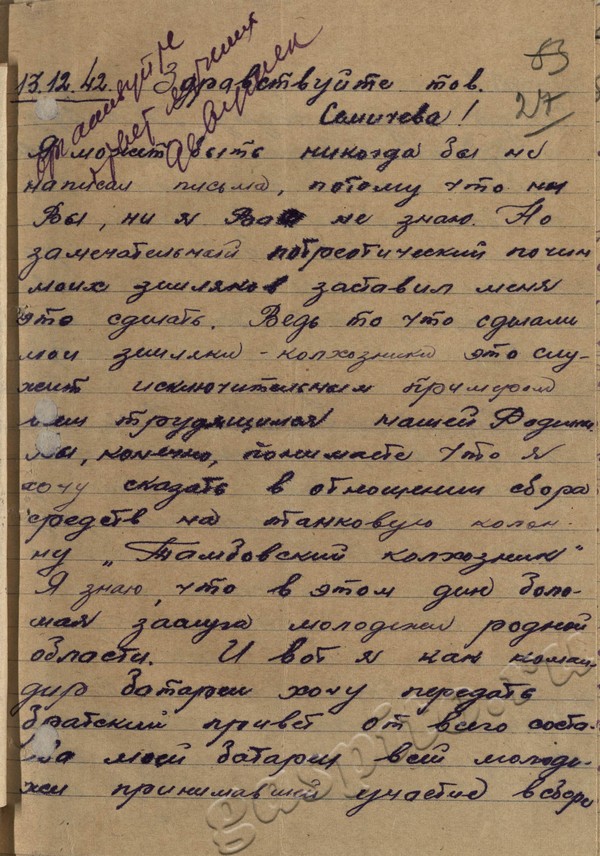 83
27
13.12.42. Здравствуйте тов.
Самичева!
Я может быть никогда бы не
написал письма, потому что ни
Вы, ни я Вас не знаю. Но
замечательный потреотический почин
моих земляков заставил меня
это сделать. Ведь то что сделали
мои земляки - колхозники это слу-
жит исключительным примером
всем трудящимся нашей Родины.
Вы, конечно, понимаете что я
хочу сказать в отношении сбора
средств на танковую колон-
ну „Тамбовский колхозник"
Я знаю, что в этом деле боль-
мая заслуга молодежи родной
области. И вот я как коман-
дир батареи хочу передать
братский привет от всего соста-
ва моей батареи всей молоде-
жи принимавшей участие в сборе